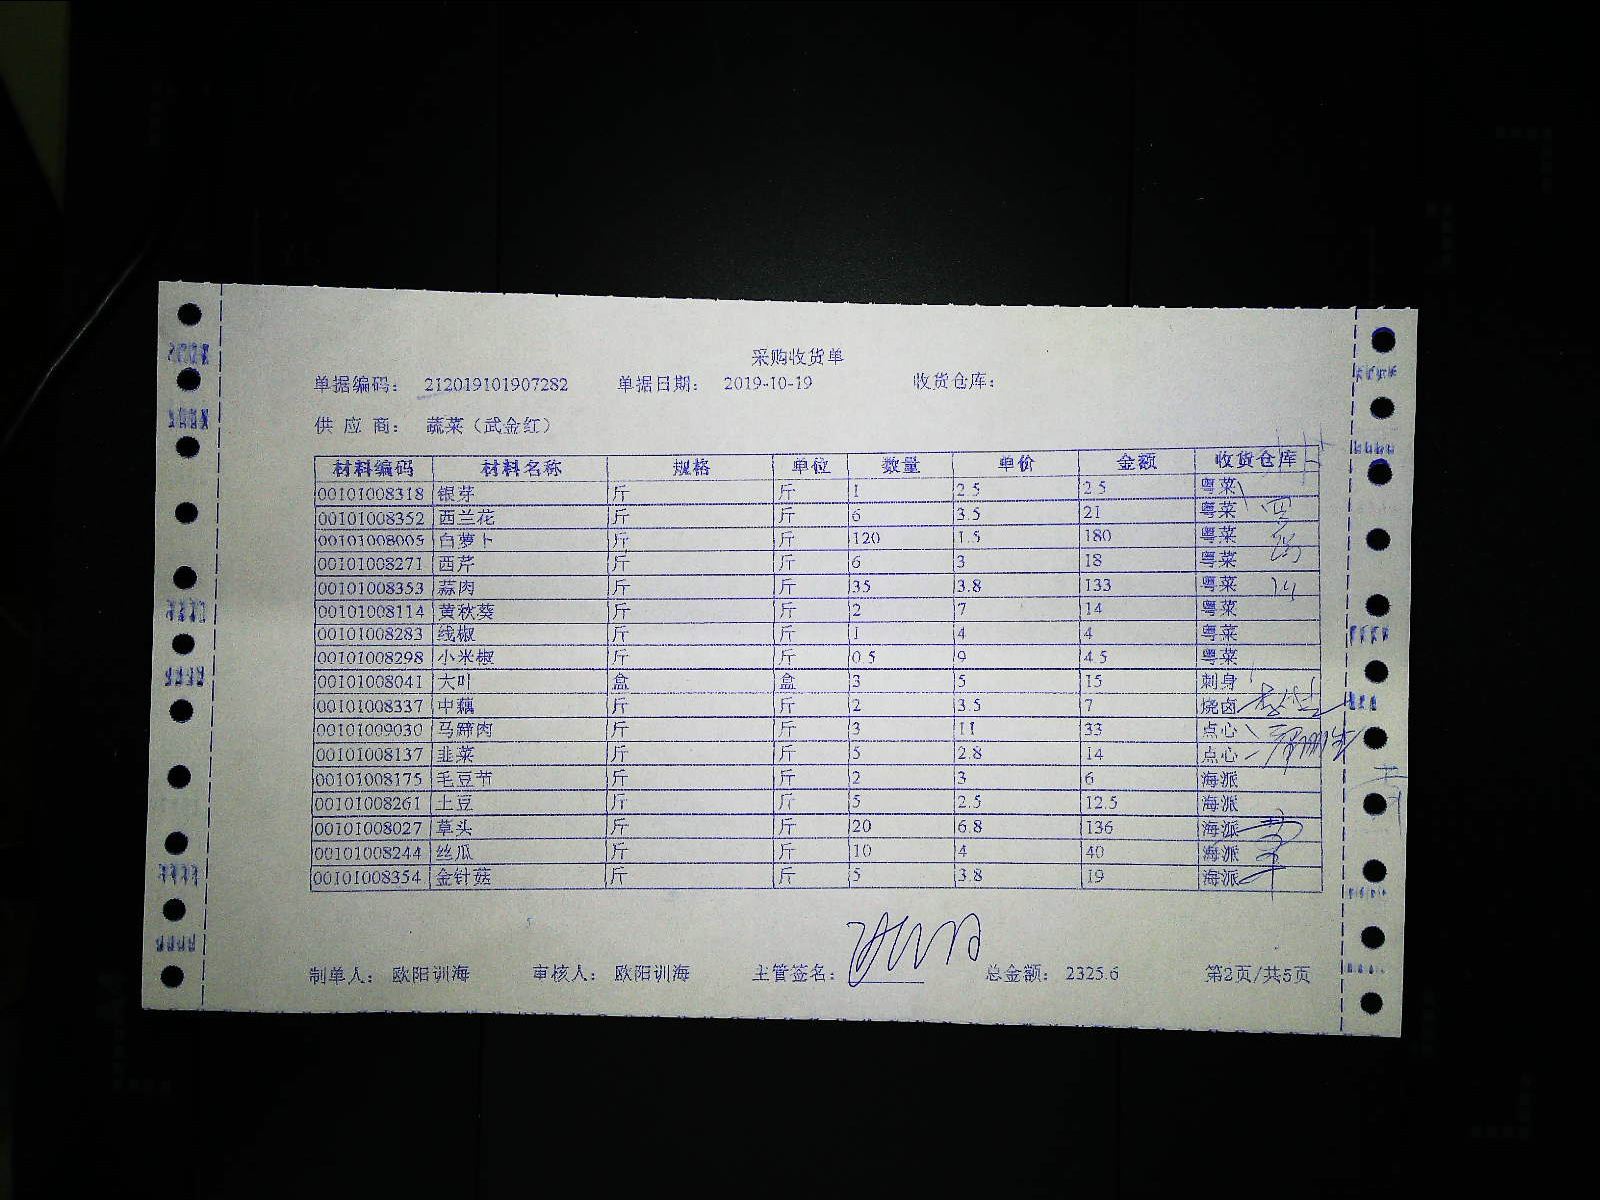 采购收货单
单据编码： 212019101907282 单据日期： 2019-10-19 收货仓库：
供 应 商： 蔬菜（武金红）
材料编码 材料名称 规格 单位 数量 单价 金额 收货仓库
00101008318 银芽 斤 斤 1 2.5 2.5 粤菜
00101008352 西兰花 斤 斤 6 3.5 21 粤菜
00101008005 白萝卜 斤 斤 120 1.5 180 粤菜
00101008271 西芹 斤 斤 6 3 18 粤菜
00101008353 蒜肉 斤 斤 35 3.8 133 粤菜
00101008114 黄秋葵 斤 斤 2 7 14 粤菜
00101008283 线椒 斤 斤 1 4 4 粤菜
00101008298 小米椒 斤 斤 0.5 9 4.5 粤菜
00101008041 大叶 盒 盒 3 5 15 刺身
00101008337 中藕 斤 斤 2 3.5 7 烧卤
00101009030 马蹄肉 斤 斤 3 11 33 点心
00101008137 韭菜 斤 斤 5 2.8 14 点心
00101008175 毛豆节 斤 斤 2 3 6 海派
00101008261 土豆 斤 斤 5 2.5 12.5 海派
00101008027 草头 斤 斤 20 6.8 136 海派
00101008244 丝瓜 斤 斤 10 4 40 海派
00101008354 金针菇 斤 斤 5 3.8 19 海派
制单人： 欧阳训海 审核人： 欧阳训海 主管签名： 总金额： 2325.6 第2页/共5页